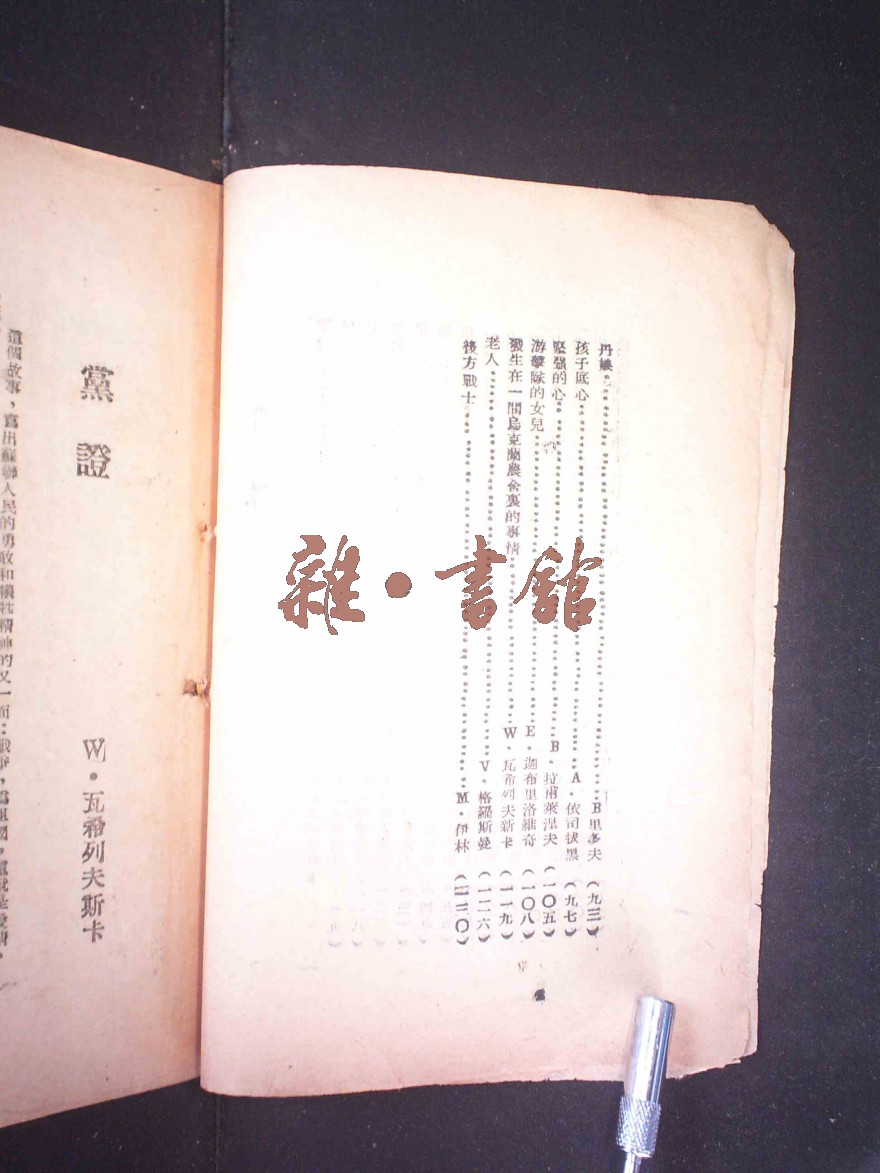 丹娘……B里多夫（九三）
孩子底心……A．依司拔黑（九七）
堅强的心……B．拉甫萊涅夫（一〇五）
游擊隊的女兒……E．迦布里洛維奇（一〇八）
發生在一間烏克蘭農舍裏的事情……W．瓦希列夫斯卡（一一九）
老人……V．格羅斯曼（一二六）
後方戰士……M．伊林（一三〇）
雜·書舘
黨證
W．瓦希列夫斯卡
這個故事，寫出蘇聯人民的勇敢和犧牲精神的又一面：戰爭，